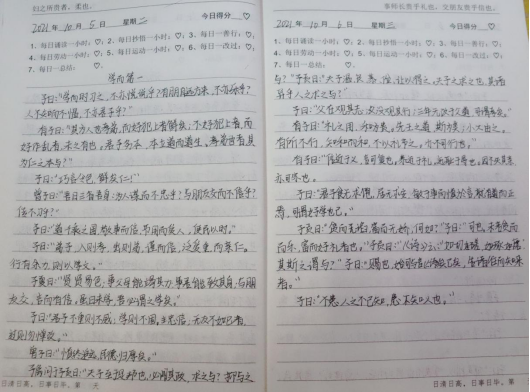 妇之所贵者，柔也。
2021年10月5日 星期二 今日得分♡
1、每日诵读一小时：♡；2、每日抄悟一小时：♡；3、每日一善行：♡；
4、每日劳动一小时：♡；5、每日运动一小时：♡；6、每日一改过：♡；
7、每日一总结： ♡
学而第一
子曰："学而时习之，不亦说乎？有朋自远方来，不亦乐乎？
人不知而不愠，不亦君子乎？"
有子曰："其为人也孝弟，而好犯上者鲜矣；不好犯上者，而
好作乱者，未之有也。君子务本，本立而道生。孝弟也者，其
为仁之本与？"
子曰："巧言令色，鲜矣仁！"
曾子曰："吾日三省吾身：为人谋而不忠乎？与朋友交而不信乎？
传不习乎？"
子曰："道千乘之国，敬事而信，节用而爱人，使民以时。"
子曰："弟子，入则孝，出则弟，谨而信，泛爱众，而亲仁。
行有余力，则以学文。"
子夏曰："贤贤易色；事父母，能竭其力；事君，能致其身；与朋
友交，言而有信。虽曰未学，吾必谓之学矣。"
子曰："君子不重则不威；学则不固。主忠信，无友不如己者，
过则勿惮改。"
曾子曰："慎终追远，民德归厚矣。"
子禽问于子贡曰："夫子至于是邦也，必闻其政，求之与？抑与之
日清日高，日事日毕。第 天
事师长贵乎礼也，交朋友贵乎信也。
2021年10月5日 星期二 今日得分♡
1、每日诵读一小时：♡；2、每日抄悟一小时：♡；3、每日一善行：♡；
4、每日劳动一小时：♡；5、每日运动一小时：♡；6、每日一改过：♡；
7、每日一总结： ♡
与？"子贡曰："夫子温、良、恭、俭、让以得之。夫子之求之也，其诸
异乎人之求之与？"
子曰："父在，观其志；父没，观其行；三年无改于父之道，可谓孝矣。"
有子曰："礼之用，和为贵。先王之道，斯为美；小大由之。
有所不行，知和而和，不以礼节之，亦不可行也。"
有子曰："信近于义，言可复也。恭近于礼，远耻辱也。因不失其亲，
亦可宗也。"
子曰："君子食无求饱，居无求安，敏于事而慎于言，就有道而正
焉，可谓好学也已。"
子贡曰："贫而无谄，富而无骄，何如？"子曰："可也。未若贫而
而乐，富而好礼者也。"子贡曰："《诗》云：'如切如磋，如琢如磨'，
其斯之谓与？"子曰："赐也，始可与言《诗》已矣，告诸往而知来
者。"
子曰："不患人之不己知，患不知人也。"
日清日高，日事日毕。第 天